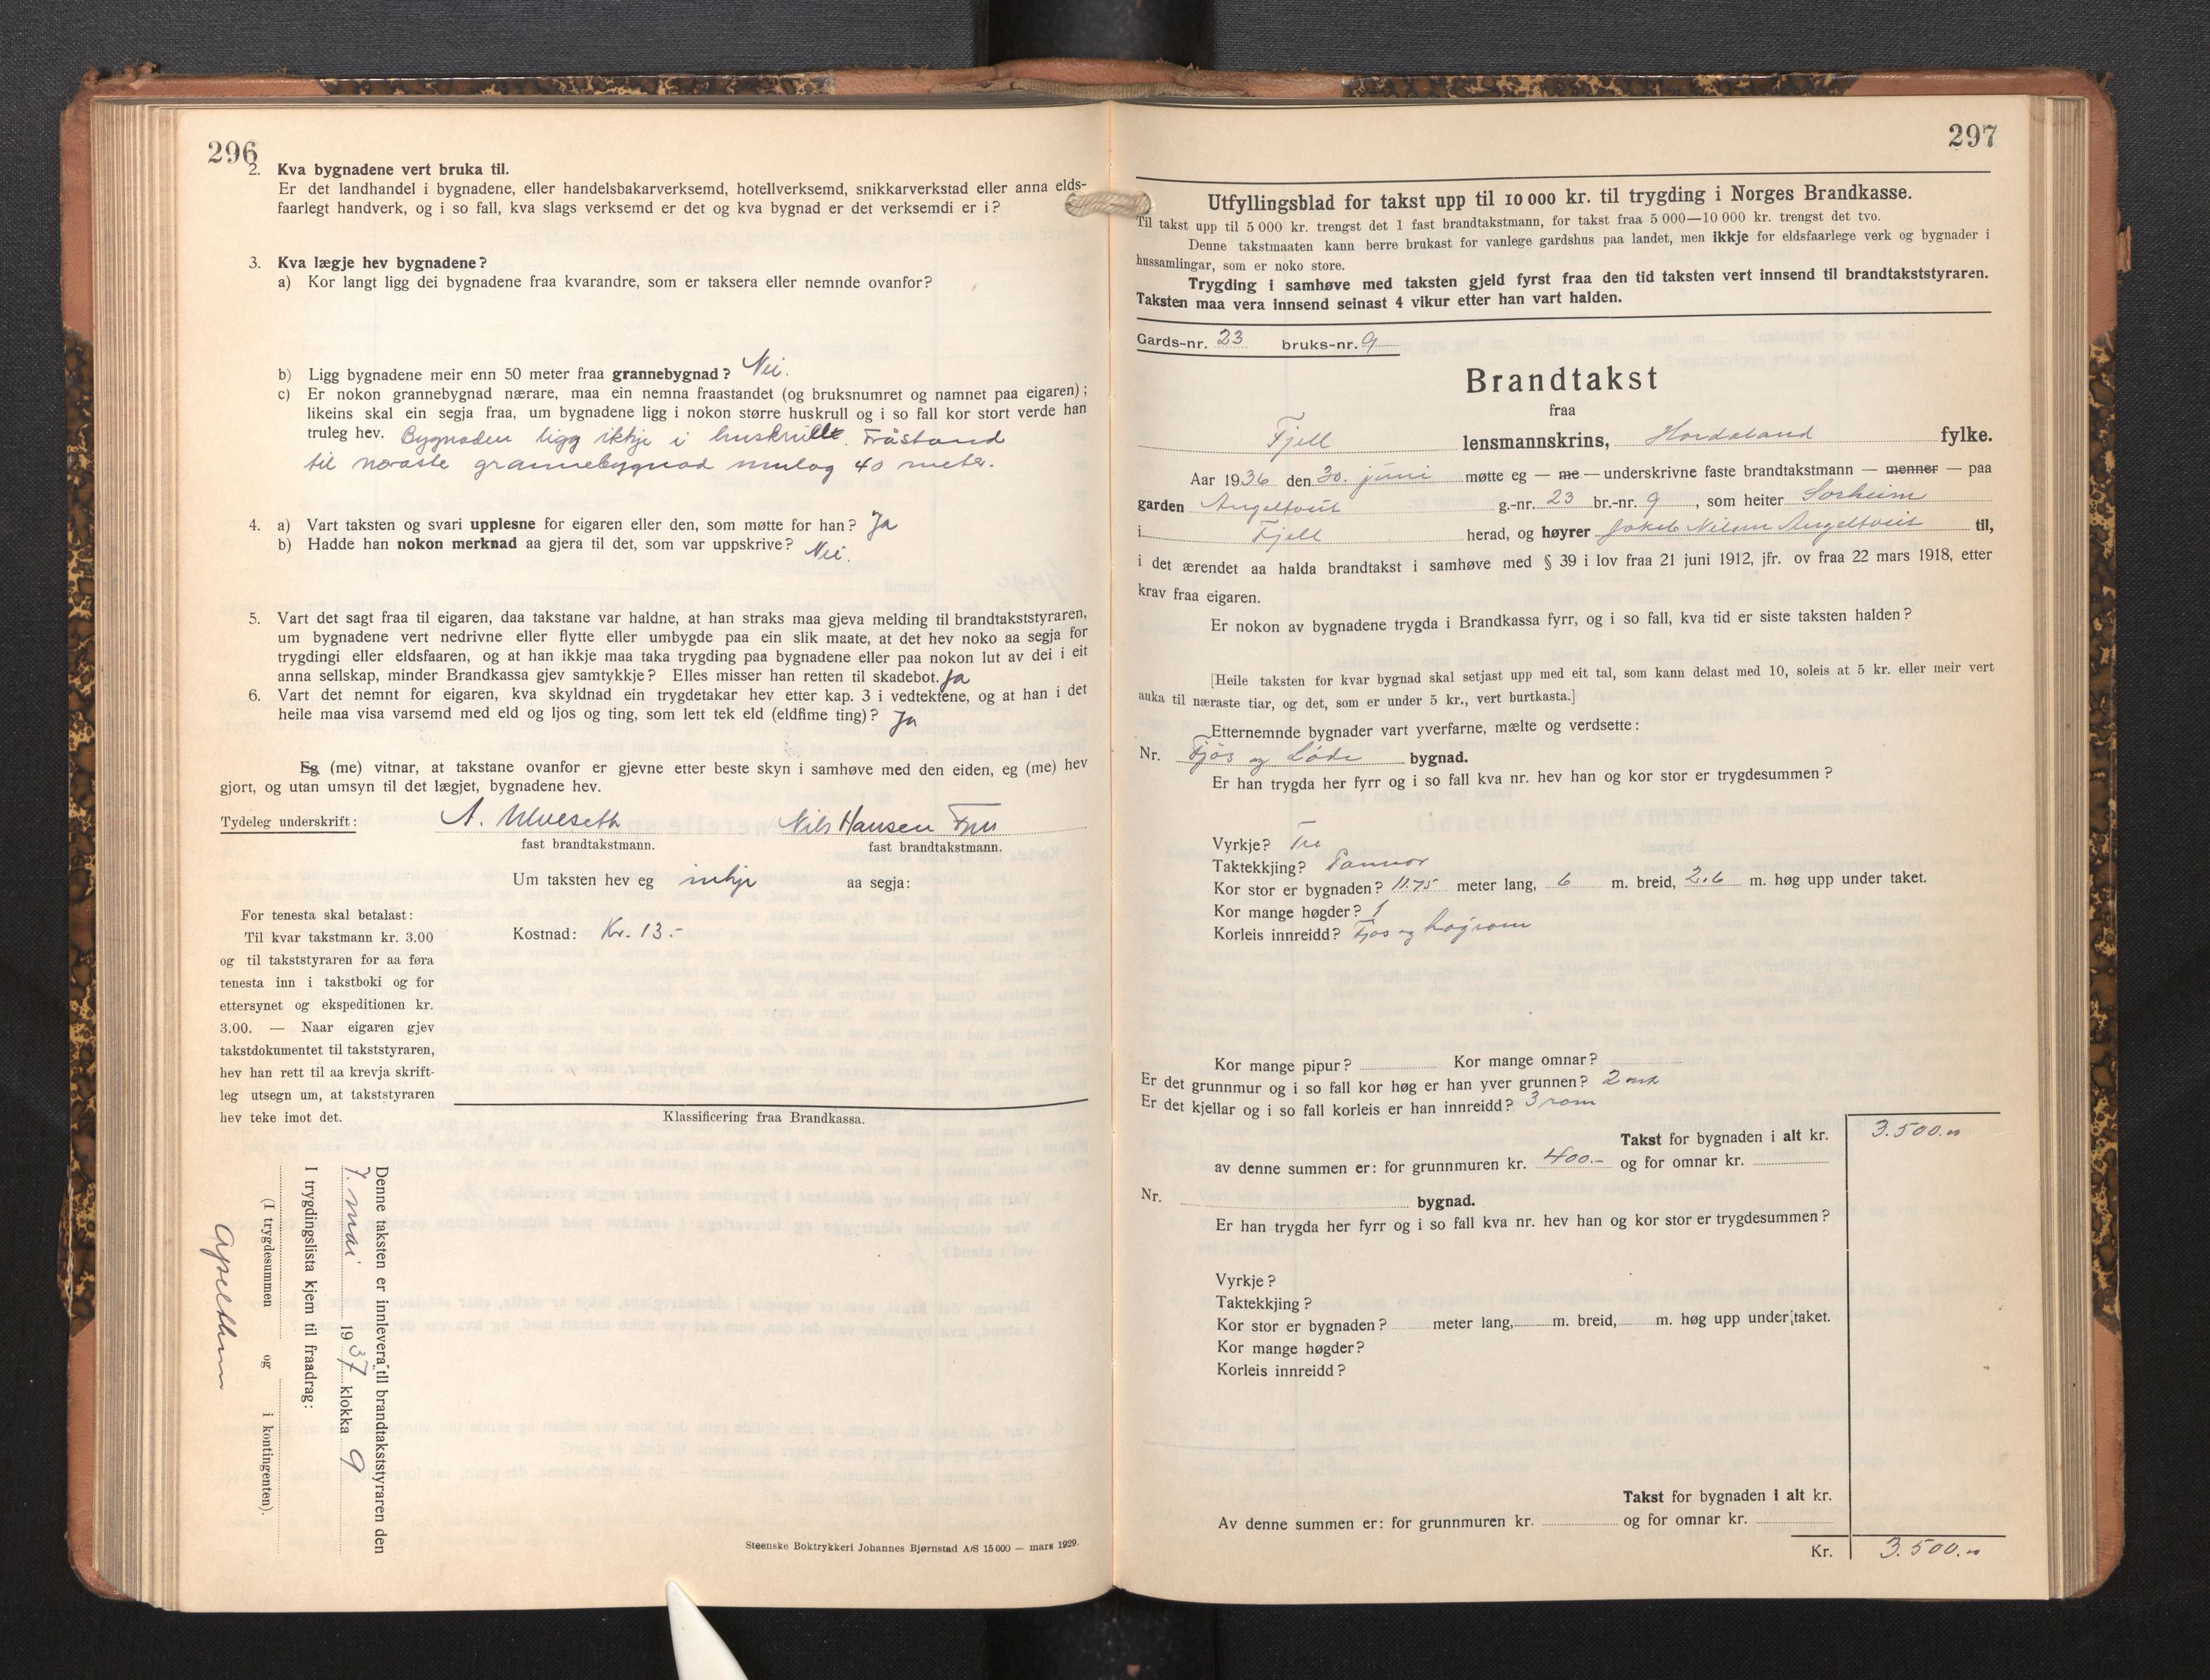 296
2. Kva bygnadene vert bruka til.
Er det landhandel i bygnadene, eller handelsbakarverksemd, hotellverksemd, snikkarverkstad eller anna elds-
faarlegt handverk, og i so fall, kva slags verksemd er det og kva bygnad er det verksemdi er i?
3. Kva lægje hev bygnadene?
a) Kor langt ligg dei bygnadene fraa kvarandre, som er taksera eller nemnde ovanfor?
b) Ligg bygnadene meir enn 50 meter fraa grannebygnad? Nei.
c) Er nokon grannebygnad nærare, maa ein nemna fraastandet (og bruksnumret og namnet paa eigaren);
likeins skal ein segja fraa, um bygnadene ligg i nokon større huskrull og i so fall kor stort verde han
truleg hev. Bygnaden ligg ikkje i huskrull. Fråstand
til næraste grannebygnad umlag 40 meter.
4. a) Vart taksten og svari upplesne for eigaren eller den, som møtte for han? Ja
b) Hadde han nokon merknad aa gjera til det, som var uppskrive? Nei.
5. Vart det sagt fraa til eigaren, daa takstane var haldne, at han straks maa gjeva melding til brandtakststyraren,
um bygnadene vert nedrivne eller flytte eller umbygde paa ein slik maate, at det hev noko aa segja for
trygdingi eller eldsfaaren, og at han ikkje maa taka trygding paa bygnadene eller paa nokon lut av dei i eit
anna sellskap, minder Brandkassa gjev samtykkje? Elles misser han retten til skadebot. Ja
6. Vart det nemnt for eigaren, kva skyldnad ein trygdetakar hev etter kap. 3 i vedtektene, og at han i det
heile maa visa varsemd med eld og ljos og ting, som lett tek eld (eldfime ting)? Ja
Eg (me) vitnar, at takstane ovanfor er gjevne etter beste skyn i samhøve med den eiden, eg (me) hev
gjort, og utan umsyn til det lægjet, bygnadene hev.
Tydeleg underskrift: A. Ulveseth Nils Hansen
fast brandtakstmann. fast brandtakstmann.
Um taksten hev eg inkje aa segja:
Kostnad: Kr. 13.-
For tenesta skal betalast:
Til kvar takstmann kr. 3.00
og til takststyraren for aa føra
tenesta inn i takstboki og for
ettersynet og ekspeditionen kr.
3.00. — Naar eigaren gjev
takstdokumentet til takststyraren,
hev han rett til aa krevja skrift-
leg utsegn um, at takststyraren
hev teke imot det.
Klassificering fraa Brandkassa.
Denne taksten er innlevera till brandtakststyraren den
7. mai 1937 klokka 9
I trygdingslista kjem til fraadrag:
(I trygdesummen og i kontingenten).
Steenske Boktrykkeri Johannes Bjørnstad A/S 15000 — mars 1929.
297
Utfyllingsblad for takst upp til 10 000 kr. til trygding i Norges Brandkasse.
Til takst upp til 5 000 kr. trengst det 1 fast brandtakstmann, for takst fraa 5 000—10 000 kr. trengst det tvo.
Denne takstmaaten kann berre brukast for vanlege gardshus paa landet, men ikkje for eldsfaarlege verk og bygnader i
hussamlingar, som er noko store.
Trygding i samhøve med taksten gjeld fyrst fraa den tid taksten vert innsend til brandtakststyraren.
Taksten maa vera innsend seinast 4 vikur etter han vart halden.
Gards-nr. 23 bruks-nr. 9
Brandtakst
fraa
Fjell lensmannskrins, Hordaland fylke.
Aar 1936 den 30. juni møtte eg — me — underskrivne faste brandtakstmann — menner — paa
garden Angeltveit g.-nr. 23 br.-nr. 9, som heiter Sørheim
i Fjell herad, og høyrer Jakob Nilsen Angeltveit til,
i det ærendet aa halda brandtakst i samhøve med § 39 i lov fraa 21 juni 1912, jfr. ov fraa 22 mars 1918, etter
krav fraa eigaren.
Er nokon av bygnadene trygda i Brandkassa fyrr, og i so fall, kva tid er siste taksten halden?
[Heile taksten for kvar bygnad skal setjast upp med eit tal, som kann delast med 10, soleis at 5 kr. eller meir vert
auka til næraste tiar, og det, som er under 5 kr., vert burtkasta.]
Etternemnde bygnader vart yverfarne, mælte og verdsette:
Nr. Fjøs og Løde bygnad.
Er han trygda her fyrr og i so fall kva nr. hev han og kor stor er trygdesummen?
Vyrkje? Tre
Taktekkjing? Pannor
Kor stor er bygnaden? 11.75 meter lang, 6 m. breid, 2.6 m. høg upp under taket.
Kor mange høgder? 1
Korleis innreidd? Fjøs og høgrom
Kor mange pipur? Kor mange omnar?
Er det grunnmur og i so fall kor høg er han yver grunnen? 2 mtr
Er det kjellar og i so fall korleis er han innreidd? 3 rom
Takst for bygnaden i alt kr. 3.500.00
av denne summen er: for grunnmuren kr. 400.- og for omnar kr.
Nr. bygnad.
Er han trygda her fyrr og i so fall kva nr. hev han og kor stor er trygdesummen?
Vyrkje?
Taktekkjing?
Kor stor er bygnaden? meter lang, m. breid, m. høg upp under taket.
Kor mange høgder?
Korleis innreidd?
Takst for bygnaden i alt kr.
Av denne summen er: for grunnmuren kr. og for omnar kr.
Kr. 3.500.00